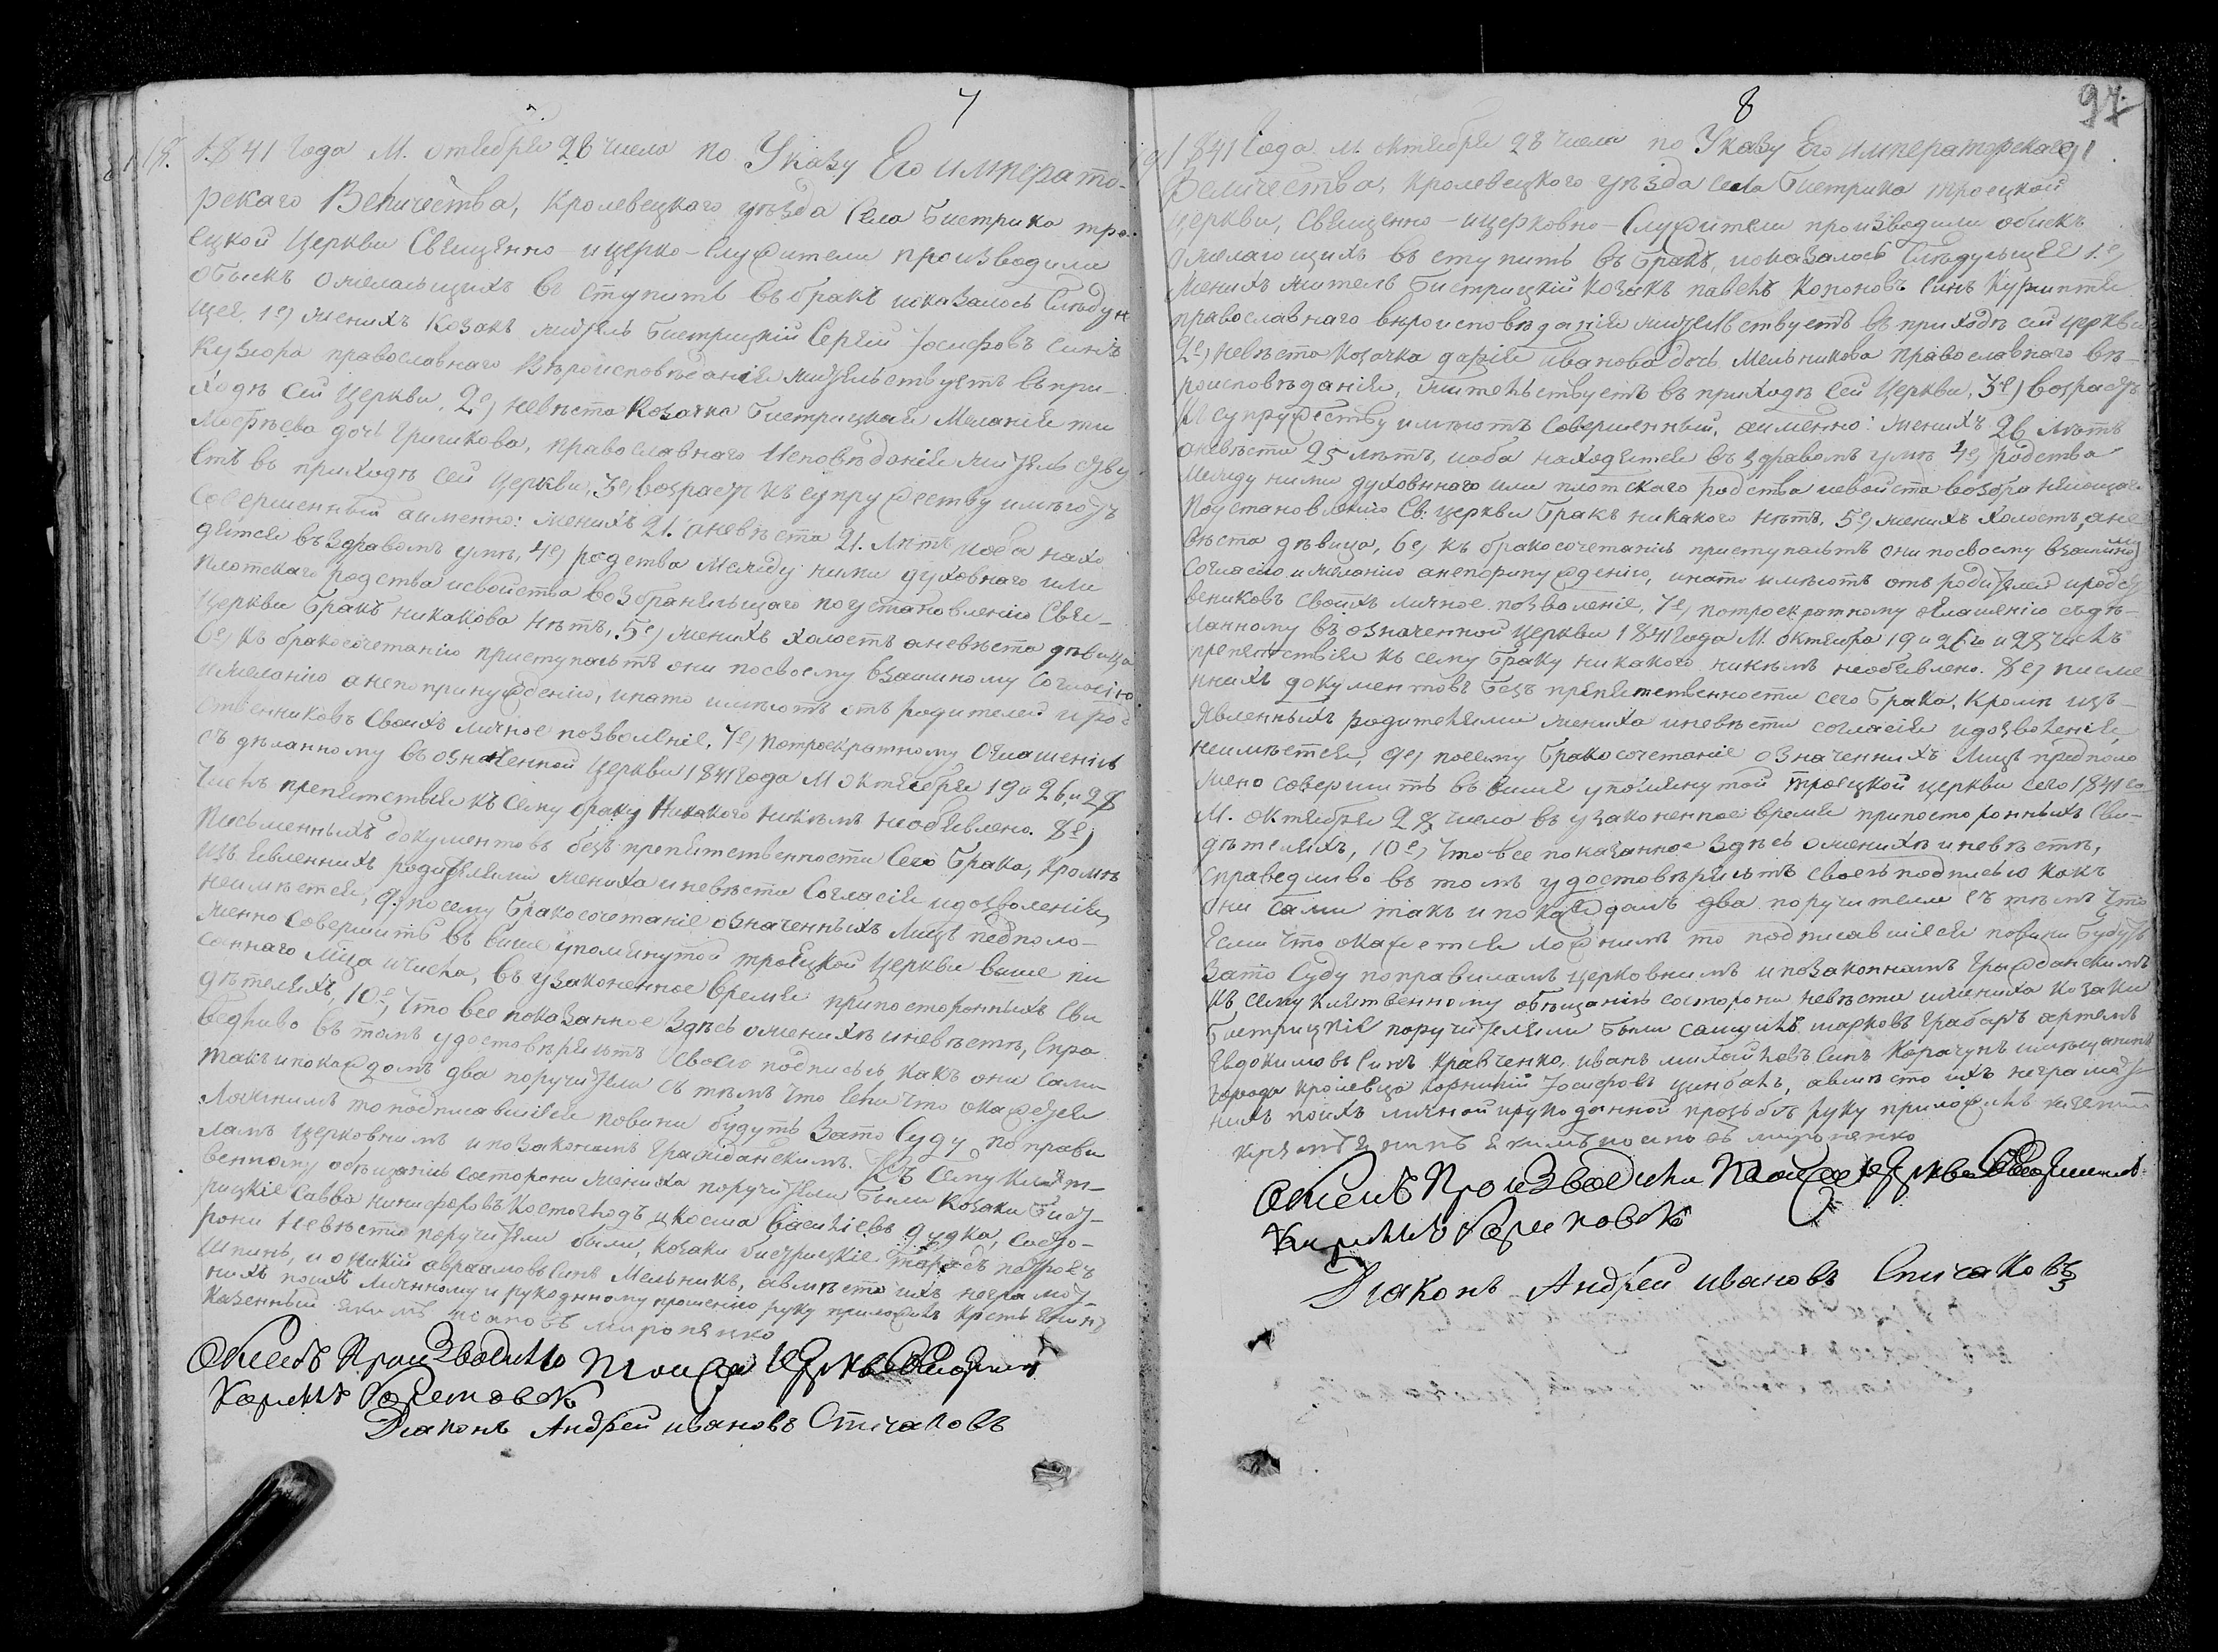 7
1841 Года М. октебря 28 числа по Указу Его Императо-
рскаго Величества, Кролевецкого уѣзда Села Бистрика тро-
ецкой Церкви Священно-и церко-Служители производили
обыскъ о желающихъ в ступить въ бракъ и оказалось Слѣдую
щея. 1е) женихъ Козакъ житель Бистрицкій Сергій Іосифовъ синъ
Кузюра православнаго Вѣроисповѣданія жительствуетъ въ при-
ходѣ Сей Церкви, 2е) невѣста Козачка Бистрицкая Меланія
дочь православнаго Исповѣданія жительству
етъ въ приходѣ Сей Церкви, 3е) возрастъ къ супружеству имѣютъ
Совершенный а именно: женихъ 21. а невѣста 21. лѣтъ и оба нахо
дятся въ здравомъ умѣ, 4е) родства между ними духовнаго или
плотскаго родства и свойства возбраняющаго по установленію Свя-
Церкви бракъ никакова нѣтъ, 5е) женихъ холостъ а невѣста дѣвица
6е) къ бракосочетанію приступаютъ они по своему взаимному Согласію
и желанію а не по принужденію, и на то имѣютъ отъ родителей и род
ственниковъ Своихъ личное позволеніе, 7е) по троекратному оглашенію
съдѣланному въ означенной Церкви 1841 года М октября 19 и 26, и 28
Числъ препятствія къ Сему браку никакого никѣмъ необявлено. 8е)
Письменныхъ документовъ безъ препятственности Сего брака, кромѣ
изъявленнихъ родителями жениха и невѣсти Согласія и дозволенія,
неимѣется, 9. по сему бракосочетаніе означенныхъ лицъ педполо-
женно Совершить въ више упомянутой троецкой Церкви више пи
саннаго Мѣца и числа, въ узаконенное время при посторонныхъ Сви
дѣтеляхъ, 10е, Что все показанное здѣсь о женихѣ и невѣстѣ, Спра
ведливо въ томъ удостовѣряютъ своею подписью какъ они Сами
такъ и по каждомъ два поручителя съ тѣмъ что если что окажется
ложнимъ то подписавшіися повини будутъ за то Суду по прави
ламъ церковнимъ и по законамъ Гражданскимъ. Къ Сему клят-
венному обѣщанію состорони жениха поручители били Козаки Бист-
рицкіе Савва никифоровъ и косма Василіевъ дудка, Состо-
рони невѣсти поручители были, козаки бистрицкіе
и оникій авраамовъ синъ Мельникъ, а вмѣсто ихъ неграмот-
нихъ по ихъ личному и рукоданному прошенію руку приложилъ
казенный якимъ миропенко
Обыскъ Производили
Діаконъ Андрей ивановъ Спичаковъ
8
97
1841 Года М. октября 28 числа по Указу Его императорскаго
Величества, Кролевецкого уѣзда села Бистрика троецкой
Церкви, Священно-и церковно-Служители производили обискъ
о желающихъ въ ступить въ бракъ, и оказалось Слѣдующея 1.е)
Женихъ житель Бистрицкій козакъ павелъ Кононовъ Синъ
православнаго вѣроисповѣданія жительствуетъ въ приходѣ сей церкви
2е) невѣста козачка дарія иванова дочь Мельникова православнаго вѣ-
роисповѣданія, жительствуетъ въ приходѣ Сей Церкви, 3е) возрастъ
къ супружеству имѣютъ Совершенный, аименно: женихъ 26 лѣтъ
а невѣста 25 лѣтъ, и оба находятся въ здравомъ умѣ 4е) родства
между ними духовнаго или плотскаго родства и свойства возбраняющаго
По установленію Св: церкви бракъ никакого нѣтъ, 5е) женихъ холостъ, а не
вѣста дѣвица, 6е) къ бракосочетанію приступаютъ они по своему взаимно му
Согласію и желанію а не по принужденію, и на то имѣютъ отъ родителей и родст
вениковъ своихъ личное позволеніе, 7е) по троекратному оглашенію съдѣ-
ланному въ означенной церкви 1841 года М. октября 19 и 26го и 28 числъ
препятствія къ сему браку никакого никѣмъ необявлено. 8е) писме
нныхъ документовъ безъ препятственности сего брака, кромѣ изъ-
явленныхъ родителями жениха и невѣсти согласія и дозволенія,
неимѣется, 9е) посему бракосочетаніе означеннихъ лицъ предполо
жено совершить въ више упомянутой троецкой церкви сего 1841 го
М. октября 28 числа въ узаконенное время при посторонныхъ Сви-
дѣтеляхъ, 10е) Что все показанное здѣсь о женихѣ и невѣстѣ,
Справедливо въ томъ удостовѣряютъ своею подписью какъ
они сами такъ и по каждомъ два поручителя съ тѣмъ что
Если что окажется ложнимъ то подписавшіися повини будутъ
за то Суду по правиламъ церковнимъ и по законнамъ Гражданскимъ
къ сему клятвенному обѣщанію состорони невѣсти и жениха козаки
Бистрицкіе поручителями были самуилъ марковъ Грабаръ артемъ
Евдокимовъ Синъ Кравченко, иванъ михайловъ Синъ Карачунъ и мѣщанинъ
города кролевца Іосифовъ цинбалъ, а вмѣсто ихъ неграмот
нихъ по ихъ личной и рукоданной прозьбѣ руку приложилъ
якимъ миропенко
Обыскъ Производили
Діаконъ Андрей ивановъ Спичаковъ